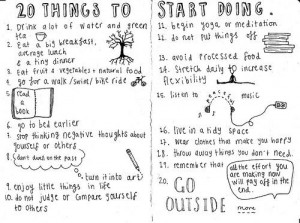 20 THINGS TO START DOING.
1. Drink alot of water and green
tea
2. Eat a big breakfast,
average lunch
& a tiny dinner
3. Eat fruit & vegetables + natural food
4. go for a walk / swim / bike ride
5. read
a
book
6. go to bed earlier
7. stop thinking negative thoughts about
yourself or others
8. don't dwell on the past
turn it into art
9. enjoy little things in life
10. do not judge or compare yourself
to others
11. begin yoga or meditation
12. do not put things off
13. avoid processed food
14. Stretch daily to increase
flexibility
15. listen to music
16. live in a tidy space
17. Wear clothes that make you happy
18. throw away things you don't need.
19. remember that all the effort you
are making now
will pay off in the
end.
20. GO
OUTSIDE
more